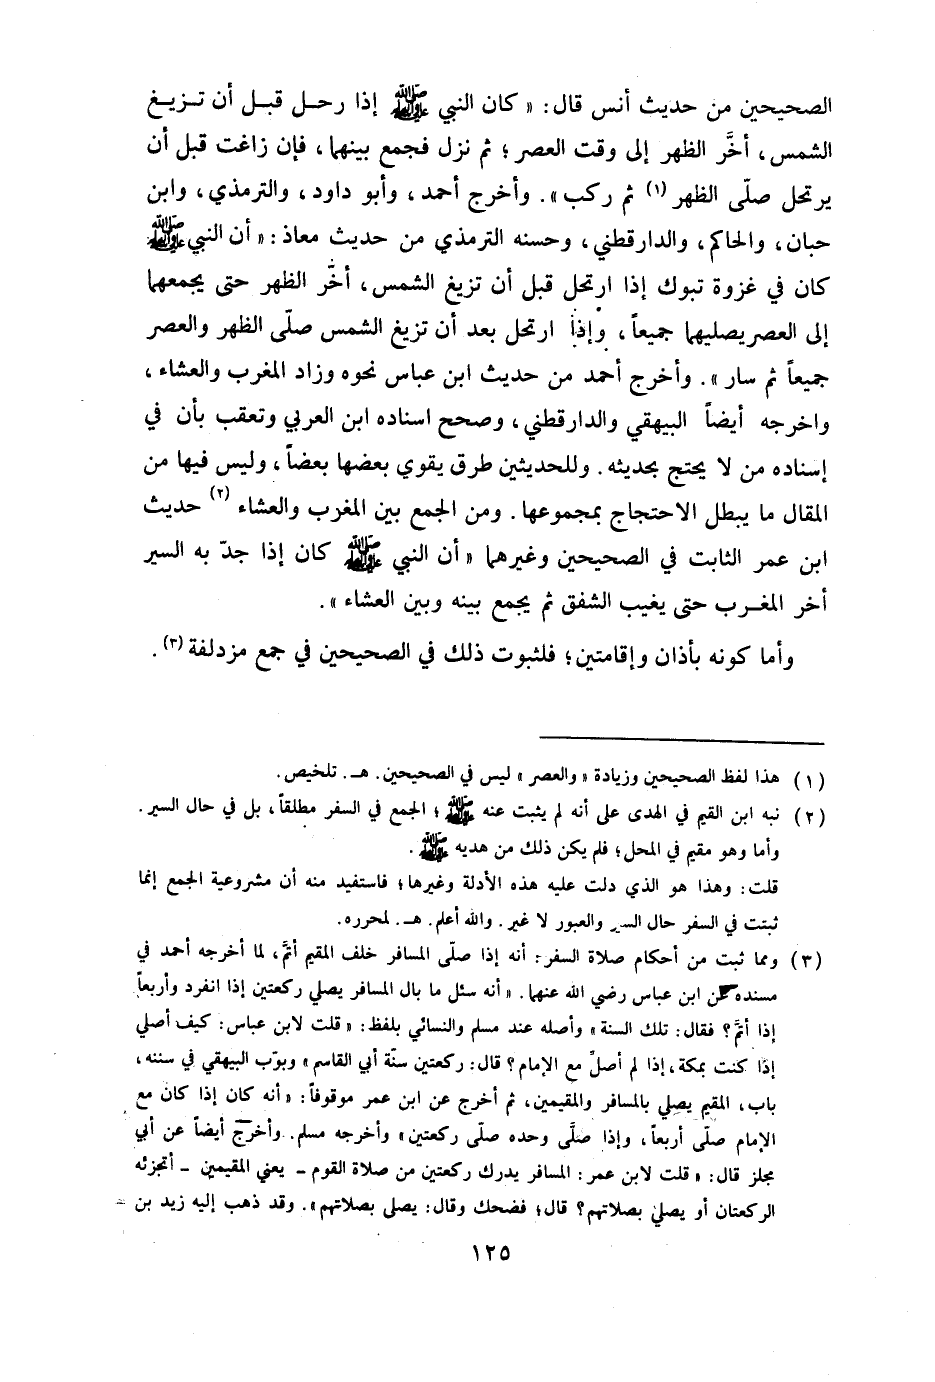 الصحيحين من حديث أنس قال: « كان النبي ﷺ إذا رحـل قبـل أن تـزيـغ
الشمس، أخَّر الظهر إلى وقت العصر؛ ثم نزل فجمع بينهما، فإن زاغت قبل أن
يرتحل صلّى الظهر (١) ثم ركب». وأخرج أحمد، وأبو داود، والترمذي، وابن
حبان، والحاكم، والدارقطني، وحسنه الترمذي من حديث معاذ: « أن النبي ﷺ
كان في غزوة تبوك إذا ارتحل قبل أن تزيغ الشمس، أخَّر الظهر حتى يجمعها
إلى العصر يصليهما جميعاً، وإذا ارتحل بعد أن تزيغ الشمس صلّى الظهر والعصر
جميعاً ثم سار ». وأخرج أحمد من حديث ابن عباس نحوه وزاد المغرب والعشاء،
واخرجه أيضاً البيهقي والدارقطني، وصحح اسناده ابن العربي وتعقب بأن في
إسناده من لا يحتج بحديثه. وللحديثين طرق يقوي بعضها بعضاً، وليس فيها من
المقال ما يبطل الاحتجاج بمجموعها. ومن الجمع بين المغرب والعشاء (٢) حديث
ابن عمر الثابت في الصحيحين وغيرهما « أن النبي ﷺ كان إذا جدّ به السير
أخر المغـرب حتى يغيب الشفق ثم يجمع بينه وبين العشاء ».
وأما كونه بأذان وإقامتين؛ فلثبوت ذلك في الصحيحين في جمع مزدلفة (٣).
(١) هذا لفظ الصحيحين وزيادة « والعصر » ليس في الصحيحين. هـ. تلخيص.
(٢) نبه ابن القيم في الهدى على أنه لم يثبت عنه ﷺ؛ الجمع في السفر مطلقاً، بل في حال السير.
وأما وهو مقيم في المحل؛ فلم يكن ذلك من هديه ﷺ.
قلت: وهذا هو الذي دلت عليه هذه الأدلة وغيرها؛ فاستفيد منه أن مشروعية الجمع إنما
ثبتت في السفر حال السير والعبور لا غير. والله أعلم. هـ. لمحرره.
(٣) ومما ثبت من أحكام صلاة السفر: أنه إذا صلّى المسافر خلف المقيم أتمَّ، لما أخرجه أحمد في
مسنده عن ابن عباس رضي الله عنهما. « أنه سئل ما بال المسافر يصلي ركعتين إذا انفرد وأربعاً
إذا أتمَّ؟ فقال: تلك السنة » وأصله عند مسلم والنسائي بلفظ: « قلت لابن عباس: كيف أصلي
إذا كنت بمكة، إذا لم أصلِّ مع الإمام؟ قال: ركعتين سنّة أبي القاسم » وبوّب البيهقي في سننه،
باب، المقيم يصلي بالمسافر والمقيمين، ثم أخرج عن ابن عمر موقوفاً: « أنه كان إذا كان مع
الإمام صلّى أربعاً، وإذا صلَّى وحده صلّى ركعتين» وأخرجه مسلم. وأخرج أيضاً عن أبي
مجلز قال: « قلت لابن عمر: المسافر يدرك ركعتين من صلاة القوم – يعني المقيمين – أتجزئه
الركعتان أو يصلي بصلاتهم؟ قال؛ فضحك وقال: يصلي بصلاتهم». وقد ذهب إليه زيد بن =
١٢٥